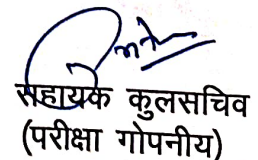 सहायक कुलसचिव
(परीक्षा गोपनीय)